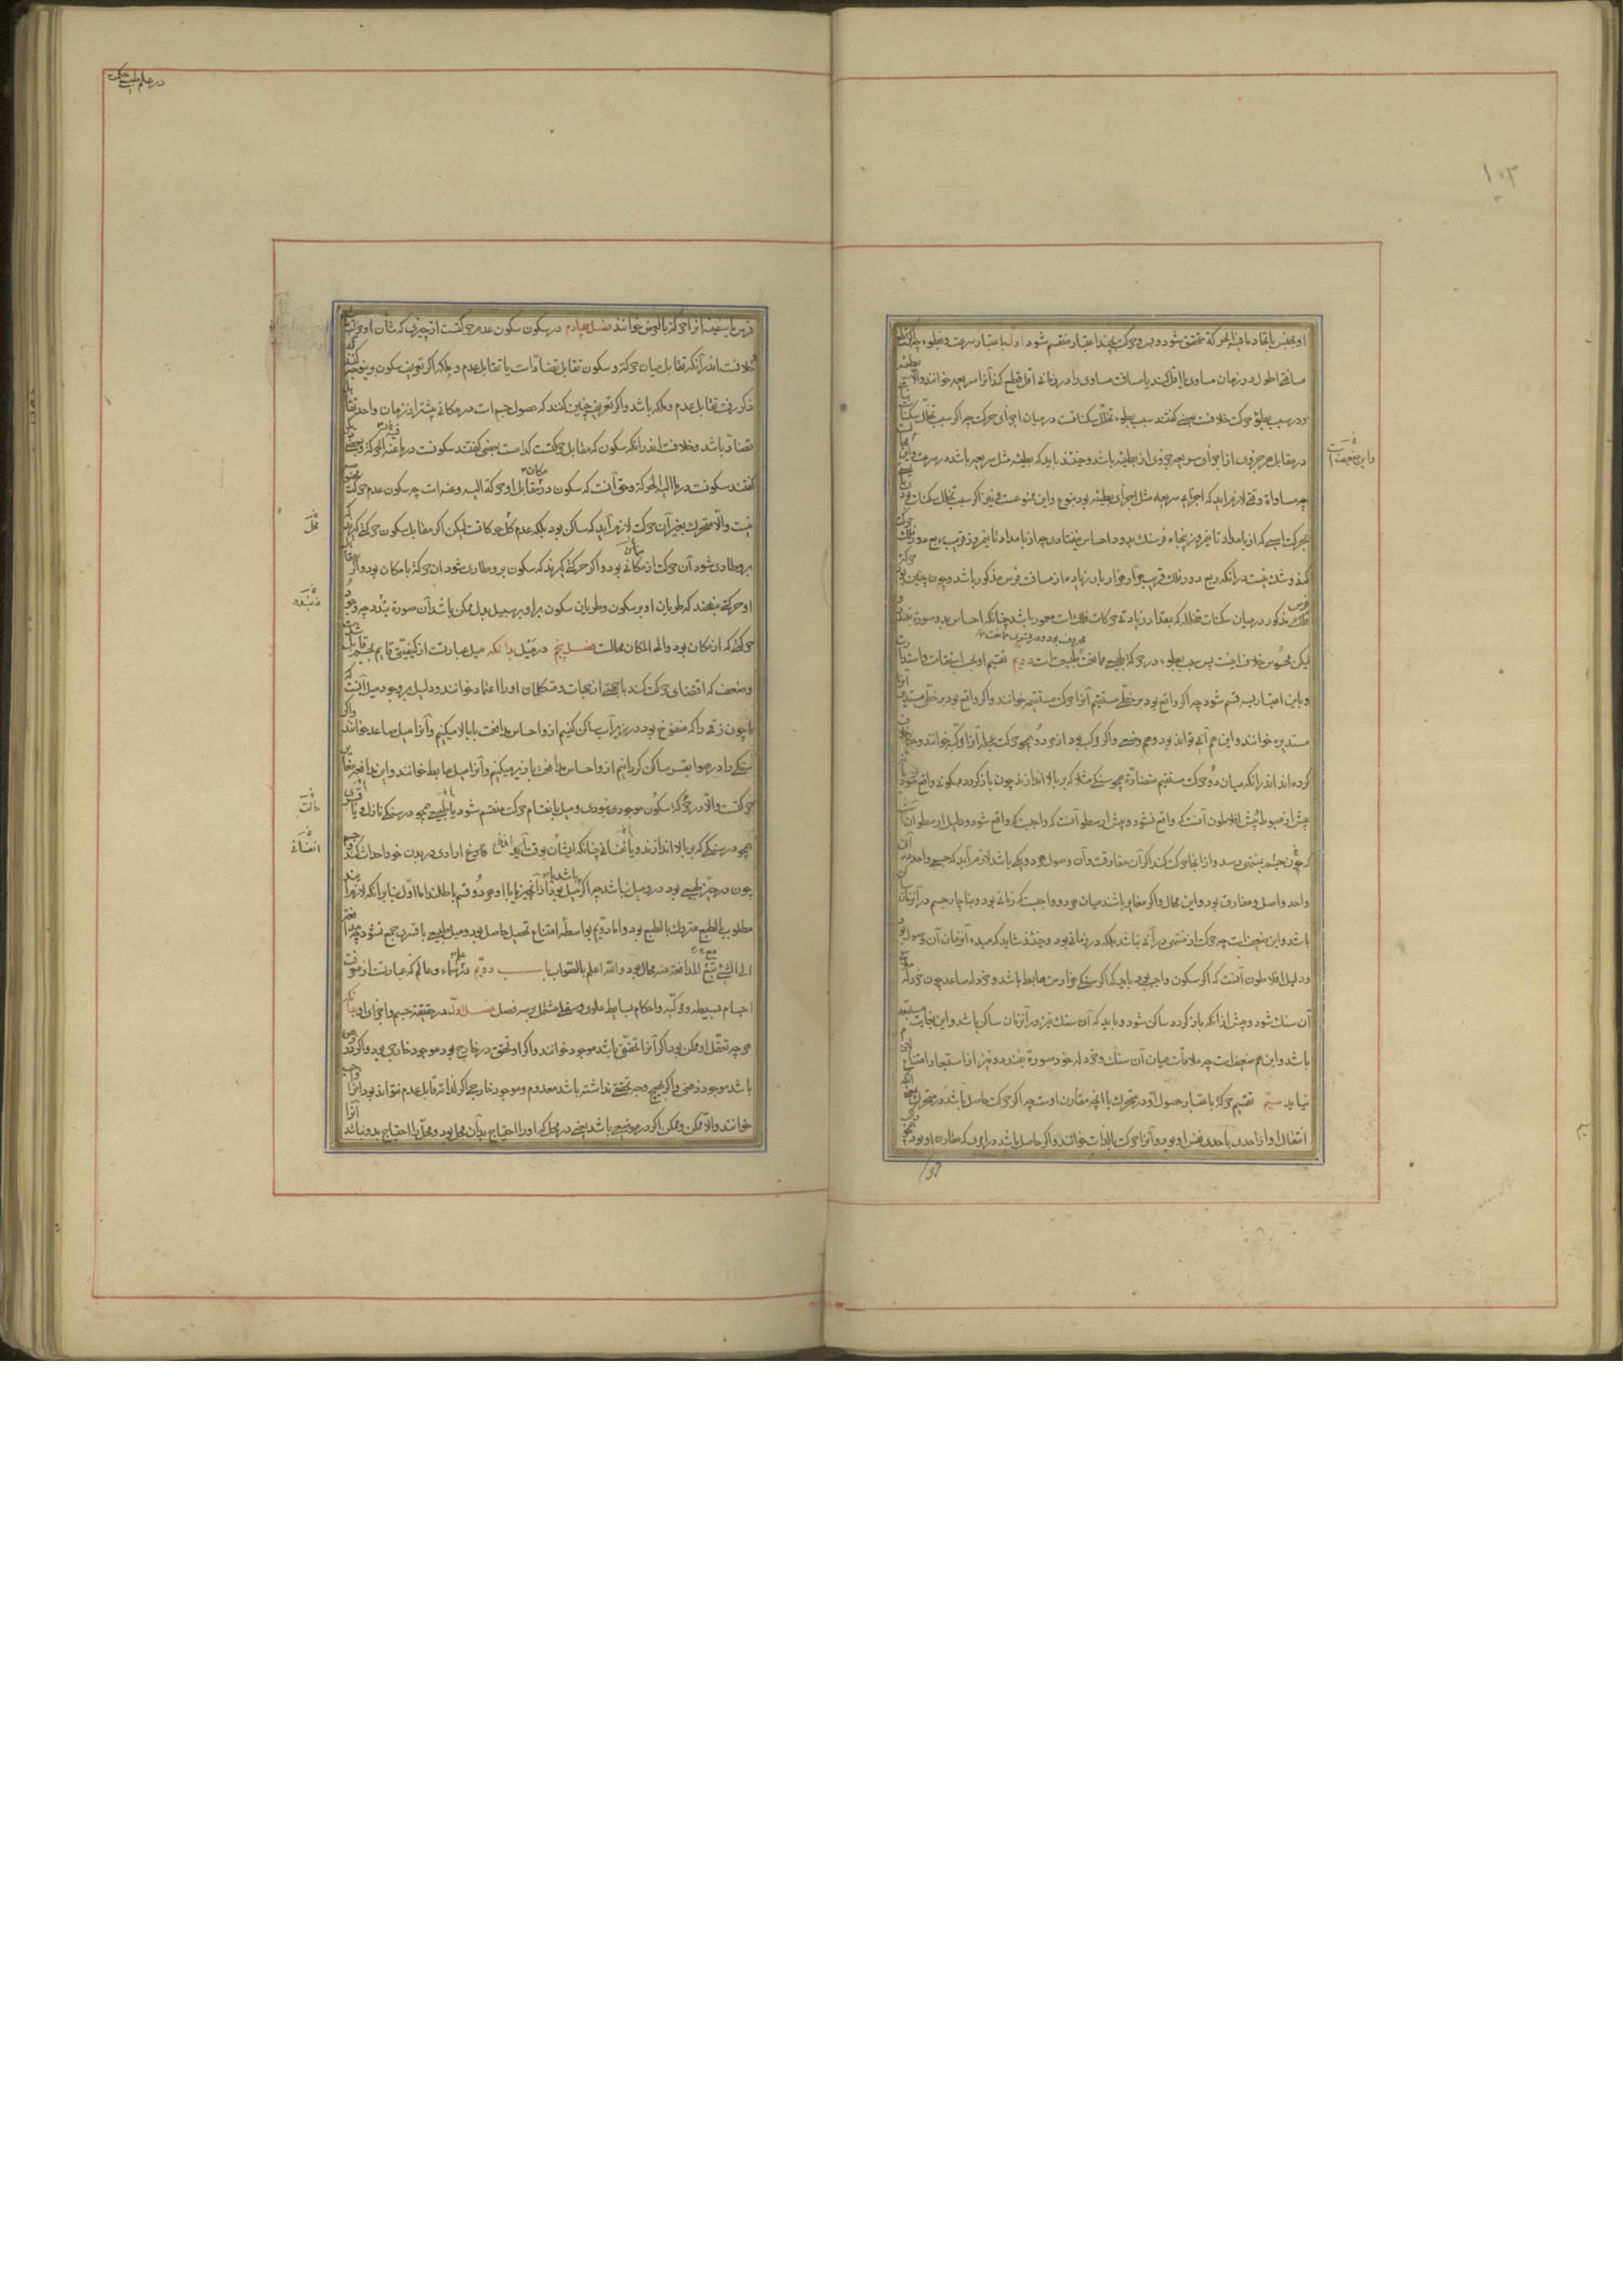 ۱۰۳
او بجنس یا بحاد ما فیه الحرکة متحقق شود و حرکت بچند اعتبار منقسم شود اول باعتبار سرعت و بطوء چه اگر قطع
مسافتی اطول در زمان مساوی یا اقل کند یا مسافت مساوی را در زمانی اقل قطع کند آنرا سریعه خوانند والا بطیئه
و در سبب بطوء حرکت خلافست بعضی گفتند سبب بطوء تخلل سکناتست در میان اجزای حرکت چه اگر سبب تخلل سکنات
در مقابل هر جزوی از اجزای سریعه جزوی از بطیئه باشد و حینئذ باید که بطیئه مثل سریعه باشد در سرعت
و این ضعیفست
چه مساواة وقتی لازم آید که اجزاء سریعه مثل اجزای بطیئه بود و این ممنوعست و نیز اگر سبب تخلل سکنات بود
بحرکت اسبی که از بامداد تا نیم روز پنجاه فرسنک برود احساس نیفتادی چه از بامداد تا نیم روز قریب ربع دور فلک
کند و شک نیست در آنکه ربع دور فلک قریب هزار هزار بار زیاده از مسافت فرس مذکور باشد و چون چنین بود
مذکور در میان سکنات متخلله که بمقدار زیادتی حرکات فلک است مغمور باشد چنانکه احساس بدو صورة نبندد
لیکن محسوس خلاف اینست پس سبب بطوء در حرکة طبیعی ممانعت طبیعت است دویم تقسیم او بحسب استقامت و استدارت
و باین اعتبار بسه قسم شود چه اگر واقع بود بر خطی مستقیم آنرا حرکت مستقیمه خوانند و اگر واقع بود بر خطی مستدیر آنرا
مستدیره خوانند و این هم آنی تواند بود و هم وضعی و اگر مرکب بود از هر دو همچو حرکت عجله آنرا مرکب خوانند و خلاف
کرده اند اندر آنکه میان دو حرکت مستقیم متضادة همچو سنکی مثلا که بر بالا اندازند چون باز گردد سکونی واقع شود
پیش از هبوط پیش افلاطون آنست که واقع نشود و پیش ارسطو آنست که واجبست که واقع شود و دلیل ارسطو آنست
که چون جسم بمنتهی رسد و از آنجا حرکت کند اگر آن مفارقت و آن وصول هر دو یکی باشد لازم آید که جسمی واحد در آن
واحد واصل و مفارق بود و این محال و اگر مغایر باشند میان هر دو واجبست که زمانی بود و بناچار جسم در آنزمان
باشد و این ضعیفست چه حرکت از منتهی در آنی نباشد بلکه در زمانی بود و حینئذ شاید که مبدء آنزمان آن وصول بود
و دلیل افلاطون آنست که اگر سکون واجب بود باید که اگر سنکی هزار من هابط باشد و خردله صاعد چون خردله
آن سنک شود و پیش از آنکه باز گردد ساکن شود و باید که آن سنک نیز در آنزمان ساکن باشد و این بغایت مستبعد
باشد و این هم ضعیفست چه ملاقات میان آن سنک و خردله خود صورة نبندد و نیز از استبعاد امتناع
نیاید سیم تقسیم حرکة باعتبار حصول او در متحرک یا انچه مقارن اوست چه اگر حرکت حاصل باشد در متحرک
انتقال او از احدی باحدی نفس او بود و آنرا حرکت بالذات خوانند و اگر حاصل باشد در امری که مقارن او بود همچو
در علم طبیعی حکمت
در سفینه آنرا حرکة بالعرض خوانند فصل چهارم در سکون سکون عدم حرکتست از چیزی که شان او حرکت
خلافست اندر آنکه تقابل میان حرکة و سکون تقابل تضاد است یا تقابل عدم و ملکه اگر تعریف سکون برین وجه کنند که
ذکر رفت تقابل عدم و ملکه باشد و اگر تعریف چنین کنند که حصول جسم است در مکانی بیشتر از زمان واحد تقابل
تضاد باشد و خلافست اندر آنکه سکون که مقابل حرکتست کدامست بعضی گفتند سکونست در ما عنه الحرکة و بعضی
گفتند سکونست در ما الیه الحرکة و حق آنست که سکون در مکان مقابل او حرکة الیه و عنه است چه سکون عدم حرکت
نیست والا متحرک بغیر آن حرکت لازم آید که ساکن بود بلکه عدم کل حرکاتست لیکن اگر مقابل سکون حرکتی گیرند که
محل
برو طاری شود آن حرکت از مکانی بود و اگر حرکتی گیرند که سکون برو طاری شود آن حرکة با مکان بود و اگر
او حرکتی نهند که طریان او بر سکون و طریان سکون برو بر سبیل بدل ممکن باشد آن صورة نبندد چه وجود
نبندد
حرکتی که از مکان بود والی المکان محالست فصل پنجم در میل بدانکه میل عبارتست از کیفیتی قایم بجسم قابل شدت
و ضعف که اقتضای حرکت کند با جهتی از جهات و متکلمان او را اعتماد خوانند و دلیل بر وجود میل آنست که
ما چون زقی را که منفوخ بود در زیر آب ساکن کنیم ازو احساس مدافعت با بالا میکنیم و آنرا میل صاعد خوانند و اگر
سنکی را در هوا بقسر ساکن گردانیم ازو احساس مدافعت با زیر میکنیم و آنرا میل هابط خوانند و این مدافعه مغایر
حرکتست والا در حالت سکون موجود نبودی و میل بانقسام حرکت منقسم شود یا طبیعی همچو در سنکی نازل و یا قسری
حالت
همچو در سنکی که بر بالا اندازند و یا نفسانی چنانکه انسان بوقت آنکه ارادی در بدن خود احداث کند و جسم
انفسانی
چون در حیز طبیعی بود درو میل نباشد چه اگر میل بود یا از آنچیز باشد یا باو و هر دو قسم باطلند اما اول بنا بر آنکه لازم آید
مطلوب بالطبع متروک بالطبع بود و اما دویم بواسطه امتناع تحصیل حاصل بود و میل طبیعی با قسری جمع نشود چه مدافعه
الی الشئ مع المدافعة عنه محال بود والله اعلم بالصواب باب دویم در سماء و عالم که عبارتست از معرفت
اجسام بسیطه و مرکبه و احکام بسایط علوی و سفلی مشتمل بر سه فصل فصل اول در حقیقة جسم و اجزای او بدانکه
هر چه تعقل او ممکن بود اگر آنرا تحقق باشد موجود خوانند و اگر او تحقق در خارج بود موجود خارجی بود و اگر در ذهن
باشد موجود ذهنی و اگر بهیچ وجه تحقق نداشته باشد معدوم و موجود خارجی اگر لذاته قابل عدم نتواند بود آنرا واجب
خوانند والا ممکن و ممکن اگر در موضعی باشد یعنی در محلی که او را احتیاج بدان محل بود و محل را احتیاج بدو نباشد آنرا